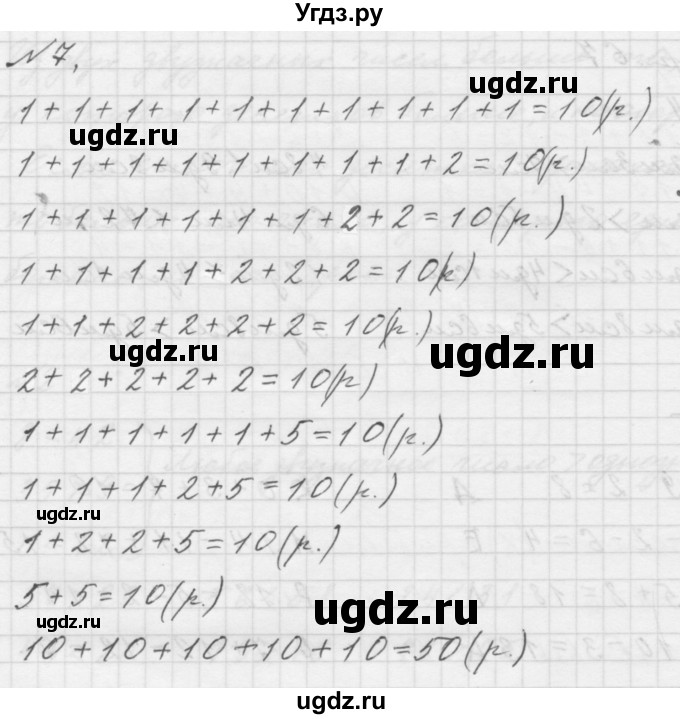 Угдз.ру
N 7.
ugdz.ru
1+1+1+1+1+1+1+1+1+1=10(р.)
ugdz.ru
1+1+1+1+1+1+1+1+2=10(р.)
1+1+1+1+1+1+2+2=10(р.)
1+1+1+1+2+2+2=10(р)
1+1+2+2+2+2=10(р.)
ugdz.ru
ugdz.ru
2+2+2+2+2=10(р)
1+1+1+1+1+5=10(р.)
1+1+1+2+5=10(р.)
ugdz.ru
1+2+2+5=10(р.)
5+5=10(р.)
ugdz.ru
ugdz.ru
10+10+10+10+10=50(р.)
ugdz.ru